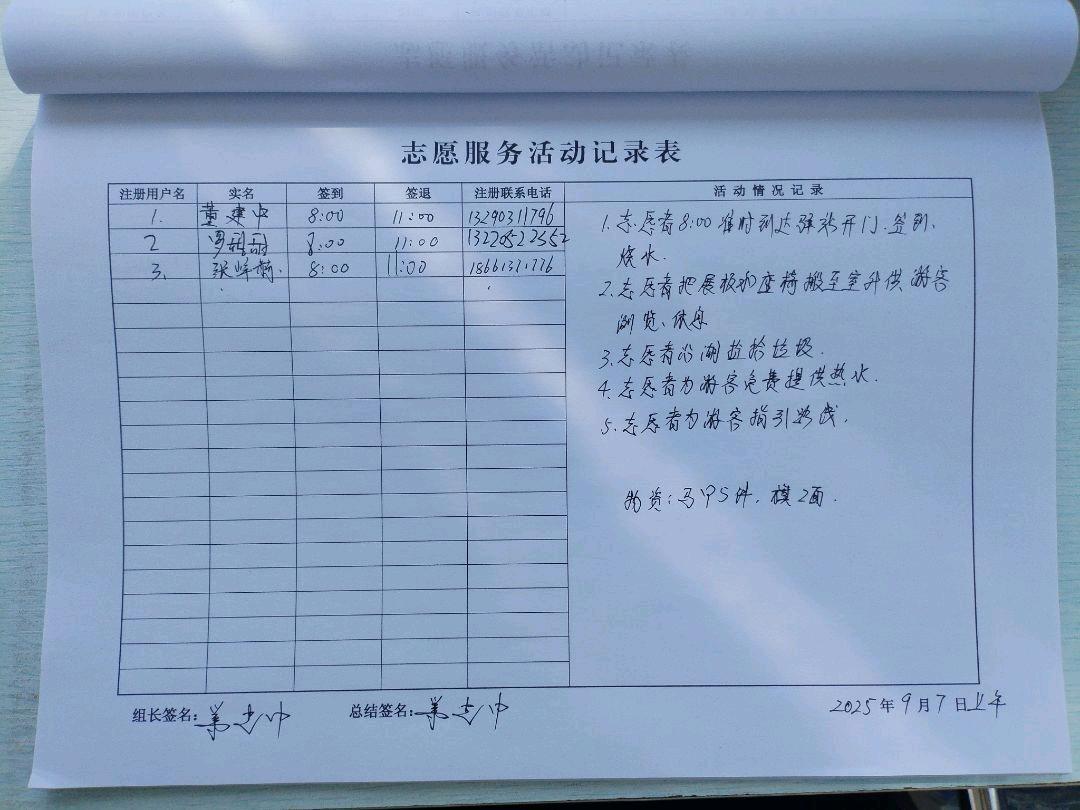 志愿服务活动记录表
注册用户名 实名 签到 签退 注册联系电话 活动情况记录
1. 董建中 8:00 11:00 13290311796
2 8:00 11:00 13220522552
3. 张 8:00 11:00
1.志愿者8:00准时到达驿站开门、签到、
烧水.
2.志愿者把展板和座椅搬至室外供游客
浏览、休息
3.志愿者沿湖捡拾垃圾.
4.志愿者为游客免费提供热水.
5.志愿者为游客指引路线.
物资:马甲5件, 旗2面.
组长签名: 董建中 总结签名: 董建中 2025年9月7日上午